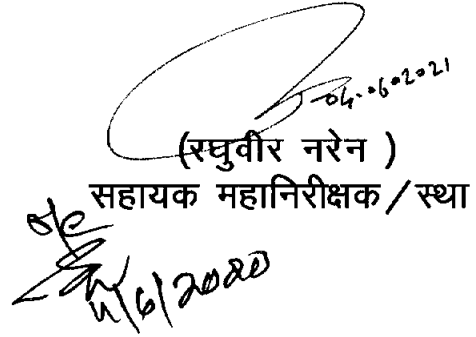 04.06.2021
(रघुवीर नरेन )
सहायक महानिरीक्षक/स्था
o/c
4/6/2020